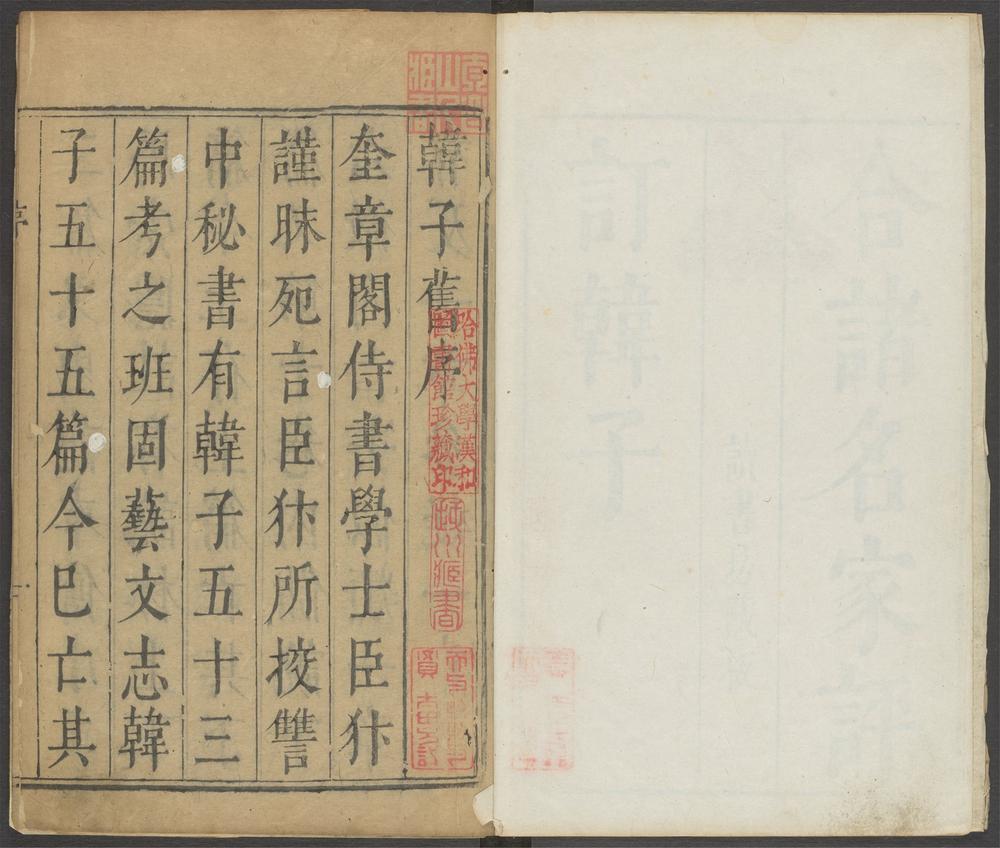 韓子舊序
奎章閣侍書學士臣犿
謹昧死言臣犿所挍讐
中秘書有韓子五十三
篇考之班固藝文志韓
子五十五篇今巳亡其
序
一
哈佛大學漢和
圖書館珍藏印
訂韓子